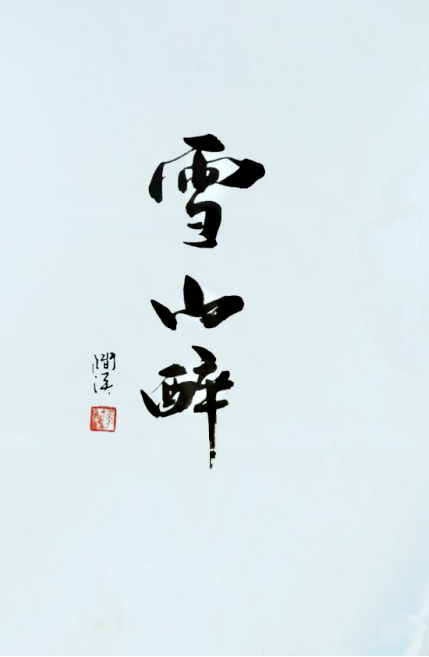 雪山醉